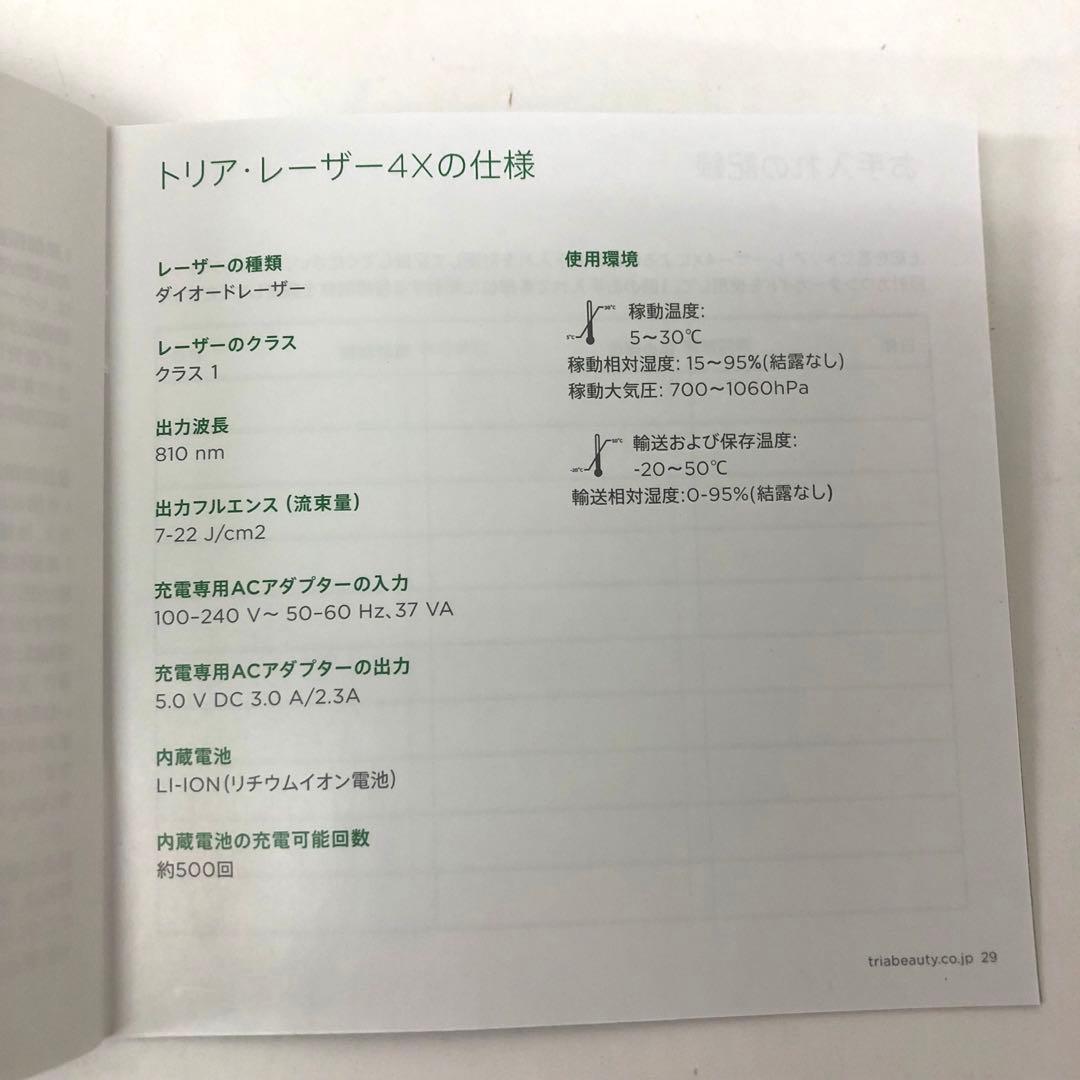 トリア・レーザー4Xの仕様
レーザーの種類
ダイオードレーザー
レーザーのクラス
クラス 1
出力波長
810 nm
出力フルエンス(流束量)
7-22 J/cm2
充電専用ACアダプターの入力
100-240 V～ 50-60 Hz、37 VA
充電専用ACアダプターの出力
5.0 V DC 3.0 A/2.3A
内蔵電池
LI-ION(リチウムイオン電池)
内蔵電池の充電可能回数
約500回
使用環境
30℃
5℃
稼動温度:
5～30℃
稼動相対湿度: 15～95%(結露なし)
稼動大気圧: 700～1060hPa
50℃
-20℃
輸送および保存温度:
-20～50℃
輸送相対湿度:0-95%(結露なし)
triabeauty.co.jp 29